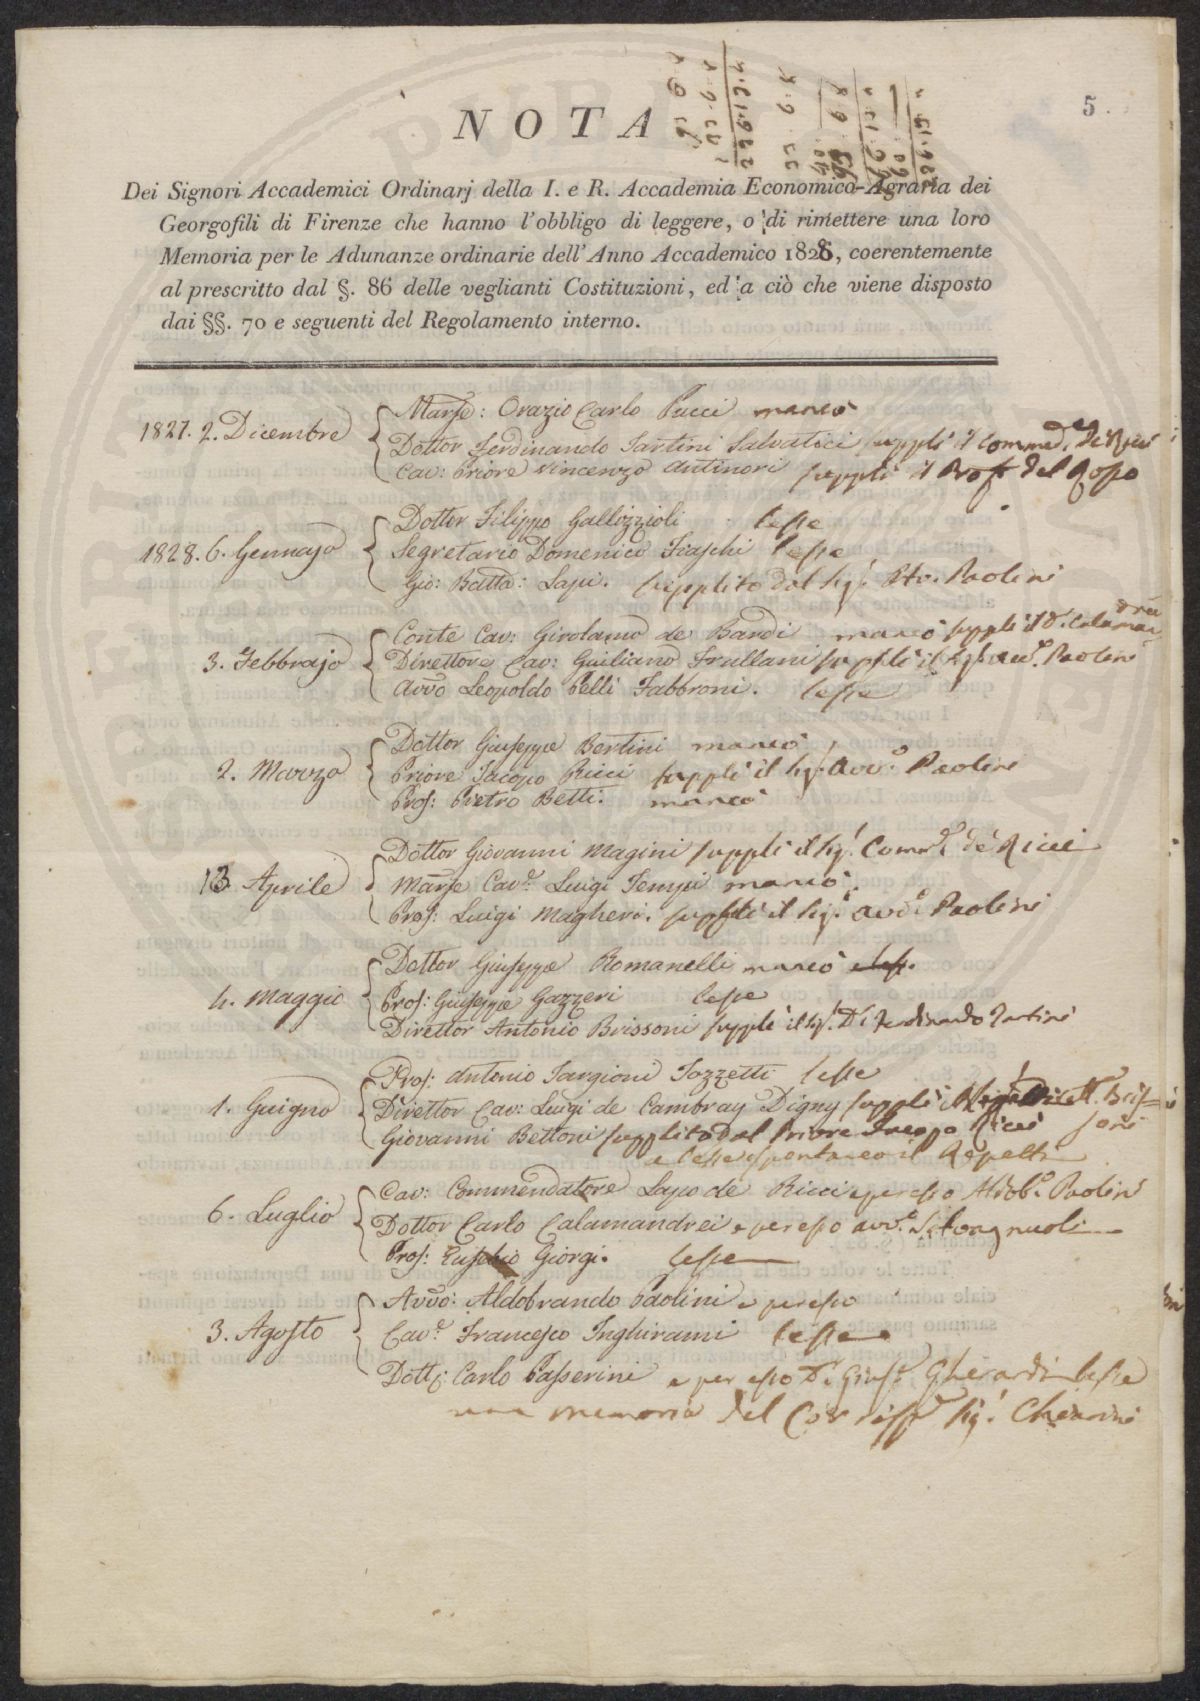 5.
NOTA
Dei Signori Accademici Ordinarj della I. e R. Accademia Economico-Agraria dei
Georgofili di Firenze che hanno l'obbligo di leggere, o di rimettere una loro
Memoria per le Adunanze ordinarie dell'Anno Accademico 1828, coerentemente
al prescritto dal §. 86 delle veglianti Costituzioni, ed a ciò che viene disposto
dai §§. 70 e seguenti del Regolamento interno.
Marse: Orazio Carlo Pucci mancò
1827. 2. Dicembre Dottor Ferdinando Tartini Salvatici supplì il Commed.e De Ricci
Cav: Priore Vincenzo Antinori supplì il Prof.r del Rosso
Dottor Filippo Gallizzioli lesse
1828. 6. Gennajo Segretario Domenico Fiaschi lesse
Gio: Batta: Lapi. supplito dal Sig.r Avv. Paolini
Conte Cav: Girolamo de Bardi mancò supplì il D. Calamandrei
3. Febbrajo Direttore Cav: Giuliano Frullani supplì il Sig.r Avv. Paolini
Avvo Leopoldo Pelli Fabbroni. lesse
Dottor Giuseppe Bertini mancò
2. Marzo Priore Jacopo Ricci supplì il Sig. Avv.o Paolini
Prof: Pietro Betti. mancò
Dottor Giovanni Magini supplì il Sig.r Comm.e de Ricci
13. Aprile Marse Cav.e Luigi Tempi mancò
Prof: Luigi Magheri. supplì il Sig.r Avv.o Paolini
Dottor Giuseppe Romanelli mancò
4. Maggio Prof: Giuseppe Gazzeri lesse
Direttor Antonio Brissoni supplì il Sig.r D. Ferdinando Tartini
Prof: Antonio Targioni Tozzetti lesse
1. Guigno Direttor Cav: Luigi de Cambray Digny supplì il Brissoni
Giovanni Bettoni supplito dal Priore Jacopo Ricci
e lesse spontaneo il Repetti
Cav: Commendatore Lapo de Ricci e per esso Aldob.o Paolini
6. Luglio Dottor Carlo Calamandrei e per esso avv.o Salvagnuoli
Prof: Eusebio Giorgi. lesse
Avvo: Aldobrando Paolini e per esso
3. Agosto Cav.e Francesco Inghirami lesse
Dott: Carlo Passerini e per esso D. Gius.e Gherardi lesse
una memoria del Corrisp.e Sig.r Chiarini